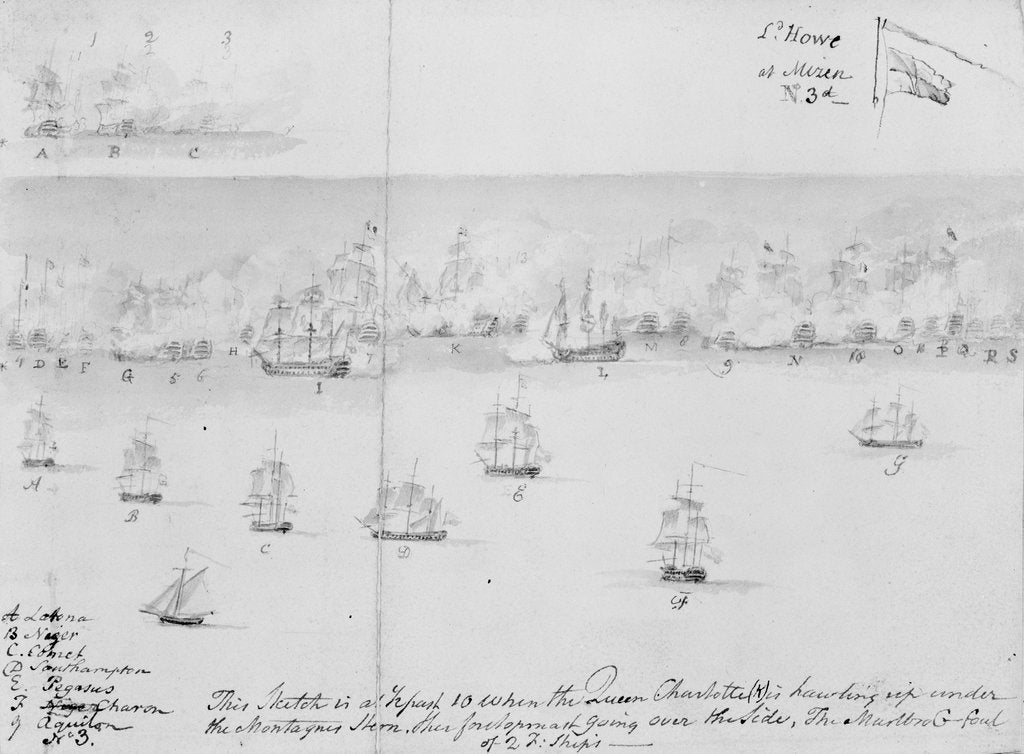 1 2 3
2 3
A B C
Ld Howe
at Mizen
No. 3d
4 D E F G 5 6 H I 7 K L M 8 9 N 10 O 11 P Q R S
A
B
C
D
E
F
G
A Latona
B Niger
C. Comet
D Southampton
E. Pegasus
F Niger Charon
g Aquilon
No 3.
This Sketch is at ½ past 10 when the Queen Charlotte (K) is hawling up under
the Montagnes Stern. Her foretopmast going over the Side, The Marlbro G - foul
of 2 F: Ships